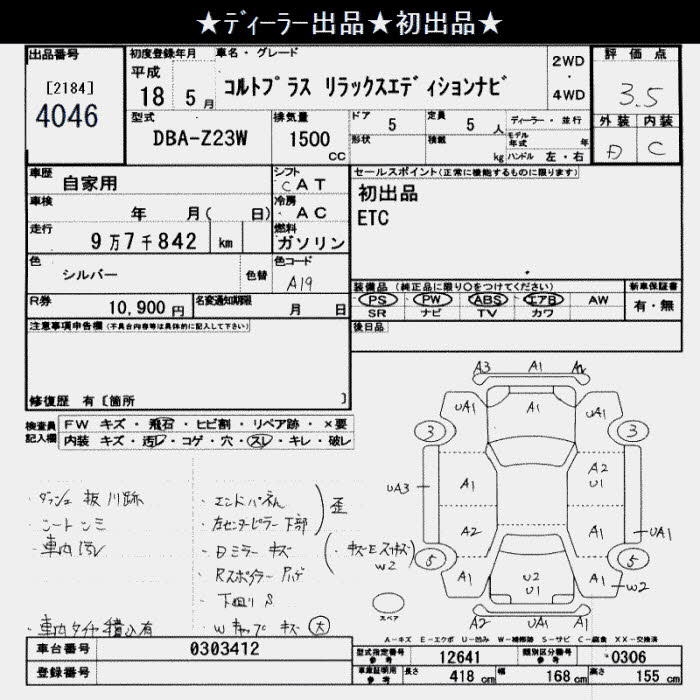 ★ディーラー出品★初出品★
出品番号
[2184]
4046
初度登録年月
平成
18 5月
車名・グレード
コルトプラス リラックスエディションナビ
2WD
・
4WD
評価点
3.5
型式
DBA-Z23W
排気量
1500
CC
ドア
5
定員
5 人
形状
積載
kg
ディーラー・並行
モデル
年式 年
ハンドル 左・右
外装 内装
D C
車歴
自家用
シフト
CAT
車検
年 月( 日)
冷房
AC
走行
9万7千842 km
燃料
ガソリン
色
シルバー
色替
色コード
A19
R券
10,900円
名変通知期限
月 日
セールスポイント(正常に機能するものに限ります)
初出品
ETC
装備品 (純正品に限り○をつけてください)
新車保証書
PS PW ABS エアB AW
有・無
SR ナビ TV カワ
後日品
注意事項申告欄(不具合内容等は具体的に記入して下さい)
修復歴 有〔箇所 〕
検査員
記入欄
FW キズ・飛石・ヒビ割・リペア跡・×要
内装 キズ・汚レ・コゲ・穴・スレ・キレ・破レ
・車内汚レ
・エンドパネル
・左センターピラー下部
歪
・Dミラー キズ
・Rスポイラー
・下回りS
・Wキャップ キズ 大
W2
・車内タイヤ積込有
A3 A1
UA1 A1 UA1
3 3
A1 A2
U1
UA3
A2 A1
UA1
5 5
A1 U2 A1
U1
W2
A2 UA1 A1
スペア
A-キズ E-エクボ U-凹み W-補修跡 S-サビ C-腐食 XX-交換済
車台番号
0303412
登録番号
型式指定番号
参考
12641
類別区分番号
参考
0306
車庫証明用
参考
長さ
418 cm
幅
168 cm
高さ
155 cm